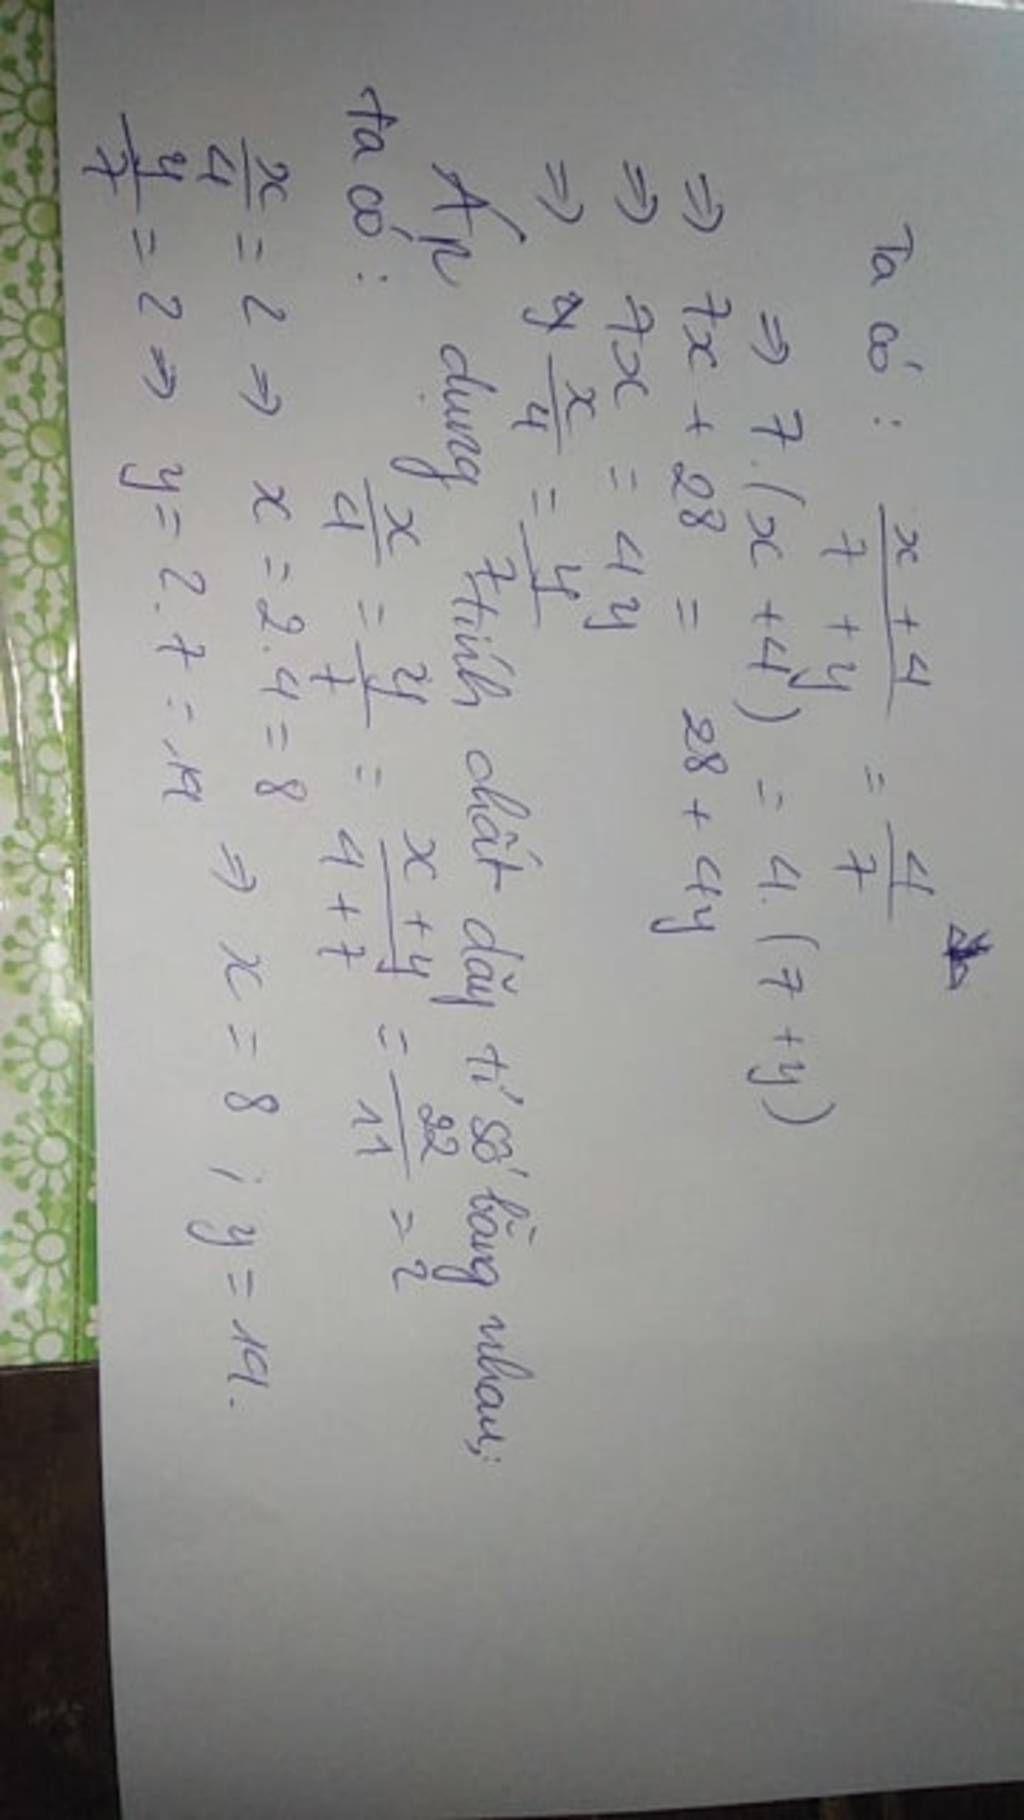 Ta có : x + 4 / 7 + y = 4 / 7
=> 7.(x + 4) = 4.(7 + y)
=> 7x + 28 = 28 + 4y
=> 7x = 4y
=> x / 4 = y / 7
Áp dụng tính chất dãy tỉ số bằng nhau,
ta có : x / 4 = y / 7 = x + y / 4 + 7 = 22 / 11 = 2
x / 4 = 2 => x = 2.4 = 8
=> x = 8 ; y = 14.
y / 7 = 2 => y = 2.7 = 14